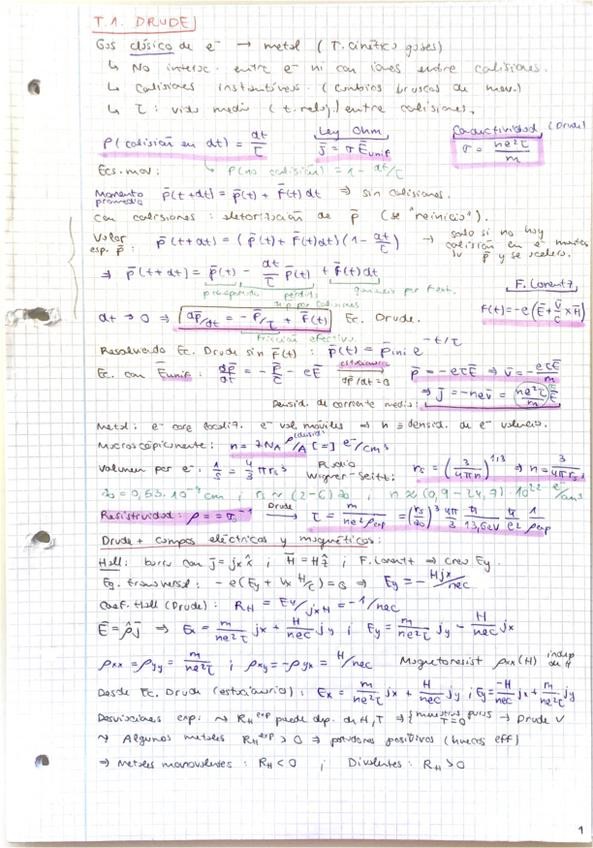 T.1. DRUDE
Gas clásico de e⁻ → metal (T. cinética gases)
↳ No interacc. entre e⁻ ni con iones entre colisiones.
↳ Colisiones instantáneas. (cambios bruscos de mov.)
↳ τ: vida media (t. relaj.) entre colisiones.
P(colisión en dt) = dt/τ   Ley Ohm j̄ = σ Ē_unif   Conductividad (Drude) σ = ne²τ/m
Ecs. mov: ↳ P(no colisión) = 1 - dt/τ
Momento promedio p̄(t+dt) = p̄(t) + F̄(t)dt ⇒ sin colisiones.
Con colisiones: aleatorización de p̄ (se "reinicia").
Valor esp. p̄: p̄(t+dt) = (p̄(t) + F̄(t)dt)(1 - dt/τ) → solo si no hay colisión en e⁻ mantiene su p̄ y se acelera.
⇒ p̄(t+dt) = p̄(t) - dt/τ p̄(t) + F̄(t)dt
F. Lorentz
dt → 0 ⇒ dp̄/dt = - p̄/τ + F̄(t) Ec. Drude. F(t) = -e(Ē + v̄/c × H̄)
Fricción efectiva
Resolviendo Ec. Drude sin F̄(t): p̄(t) = p̄ini e^(-t/τ)
Ec. con Ē unif: dp̄/dt = - p̄/τ - eĒ estacionario dp̄/dt=0 p̄ = -eτĒ ⇒ v̄ = -eτĒ/m
Densid. de corriente media: ⇒ j̄ = -nev̄ = (ne²τ/m) Ē
Metal: e⁻ core localiz. e⁻ val móviles ⇒ n ≡ densid. de e⁻ valencia.
Macroscópicamente: n = Z N_A ρ(densid)/A [=] e⁻/cm³
Volumen por e⁻: 1/n = 4/3 π rs³ Radio Wigner-Seitz: rs = (3/4πn)^(1/3) ⇒ n = 3/4πrs³
a₀ = 0,53·10⁻⁸ cm ; rs ≈ (2-6) a₀ ; n ≈ (0,9 - 24,7)·10²² e⁻/cm³
Resistividad: ρ = σ⁻¹ Drude → τ = m/ne²ρexp = (rs/a₀)³ 4π/3 ħ/13,6eV ħ/e² 1/ρexp
Drude + campos eléctricos y magnéticos:
Hall: barra con j̄ = jx x̂ ; H̄ = Hẑ ; F. Lorentz → crea Ey.
Eq. transversal: -e(Ey + vx H/c) = 0 ⇒ Ey = - Hjx/nec
Coef. Hall (Drude): R_H = Ey/jxH = -1/nec
Ē = ρ̂ j̄ ⇒ Ex = m/ne²τ jx + H/nec jy ; Ey = m/ne²τ jy - H/nec jx
ρxx = ρyy = m/ne²τ ; ρxy = -ρyx = H/nec Magnetoresist ρxx(H) indep de H
Desde Ec. Drude (estacionario): Ex = m/ne²τ jx + H/nec jy ; Ey = -H/nec jx + m/ne²τ jy
Desviaciones exp: ~> R_H^exp puede dep. de H, T → {muestras puras T=0} → Drude ✓
~> Algunos metales R_H^exp > 0 ⇒ portadores positivos (huecos eff)
⇒ Metales monovalentes: R_H < 0 ; Divalentes: R_H > 0
1